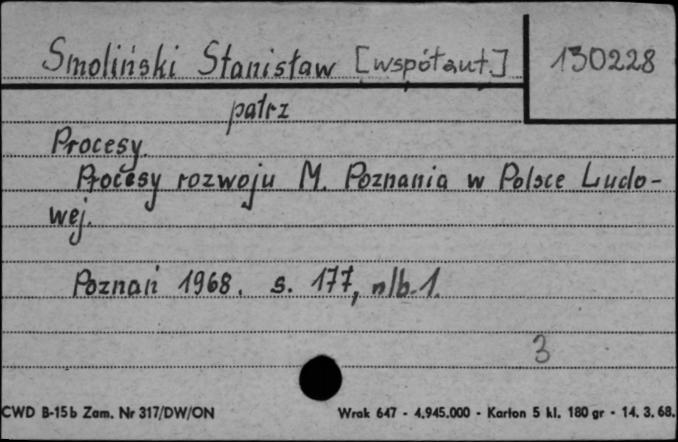 Smoliński Stanisław [współaut.] 130228
patrz
Procesy.
Procesy rozwoju M. Poznania w Polsce Ludo-
wej.
Poznań 1968. s. 177, nlb. 1.
3
CWD B-15b Zam. Nr 317/DW/ON Wrak 647 - 4.945.000 - Karton 5 kl. 180 gr - 14. 3. 68.